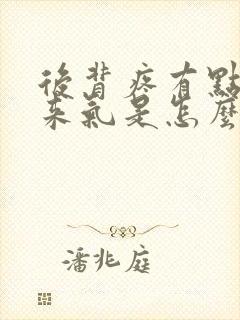 後背疼有點
來氣是怎麼
潘兆庭